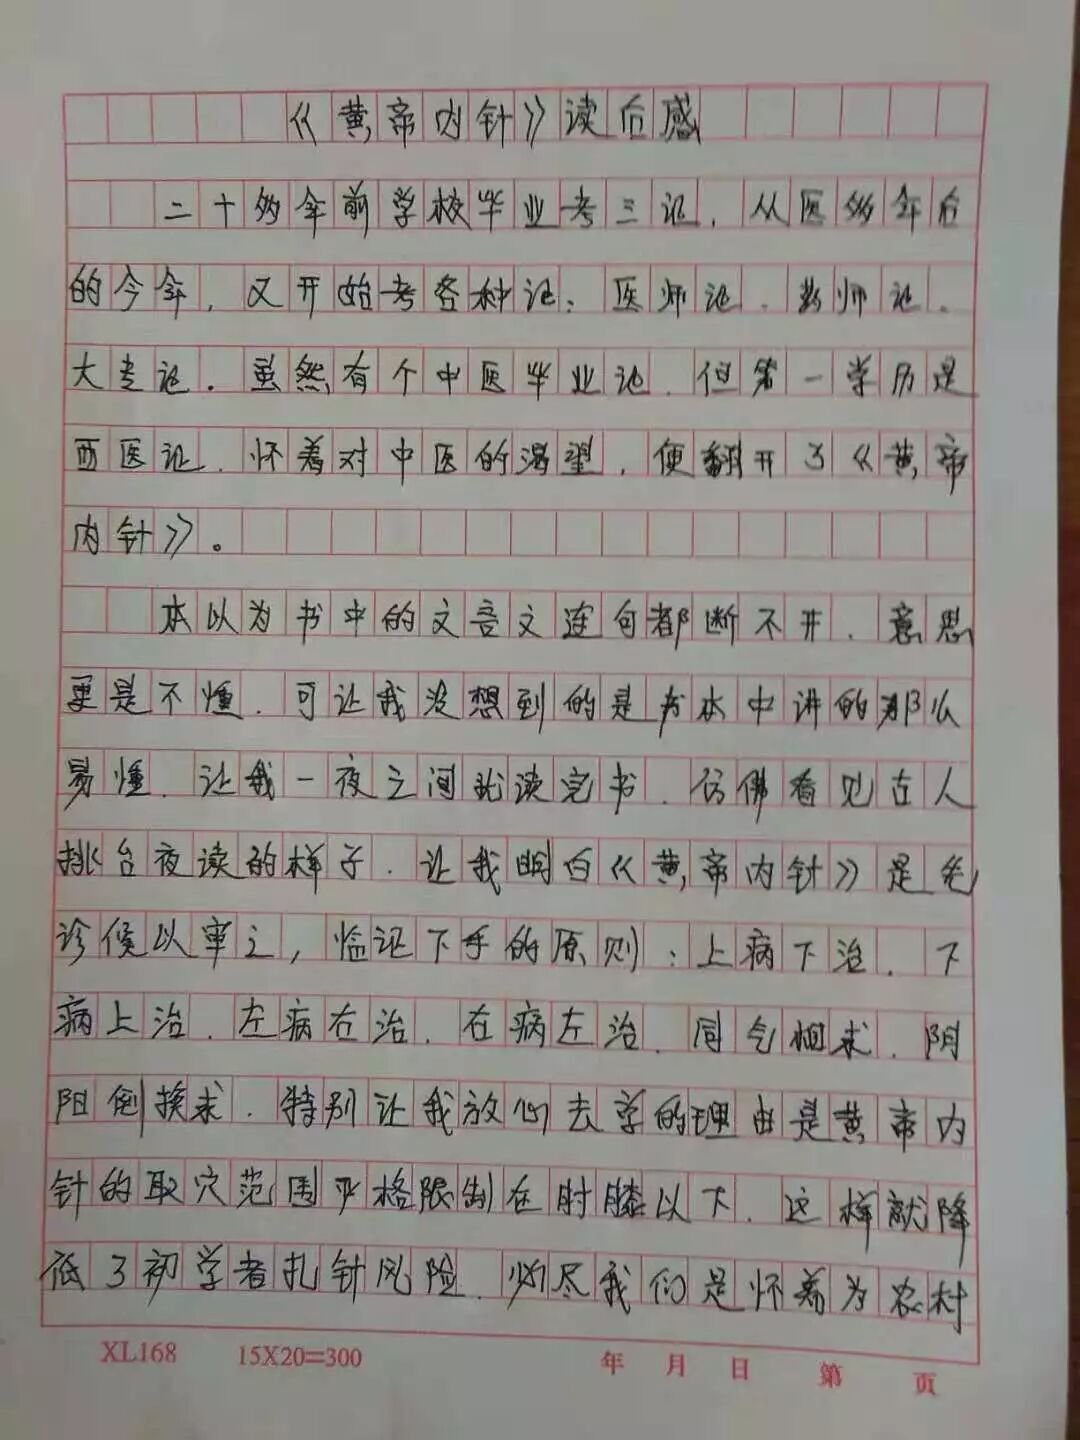 《黄帝内针》读后感
二十多年前学校毕业考三证，从医多年后
的今年，又开始考各种证：医师证、药师证、
大专证。虽然有个中医毕业证，但第一学历是
西医证，怀着对中医的渴望，便翻开了《黄帝
内针》。
本以为书中的文言文连句都断不开，意思
更是不懂，可让我没想到的是书本中讲的那么
易懂，让我一夜之间就读完书，仿佛看见古人
挑台夜读的样子，让我明白《黄帝内针》是先
诊候以审之，临证下手的原则：上病下治，下
病上治，左病右治，右病左治，同气相求，阴
阳倒换求，特别让我放心去学的理由是黄帝内
针的取穴范围严格限制在肘膝以下，这样就降
低了初学者扎针风险，必尽我们是怀着为农村
XL168 15X20=300 年 月 日 第 页